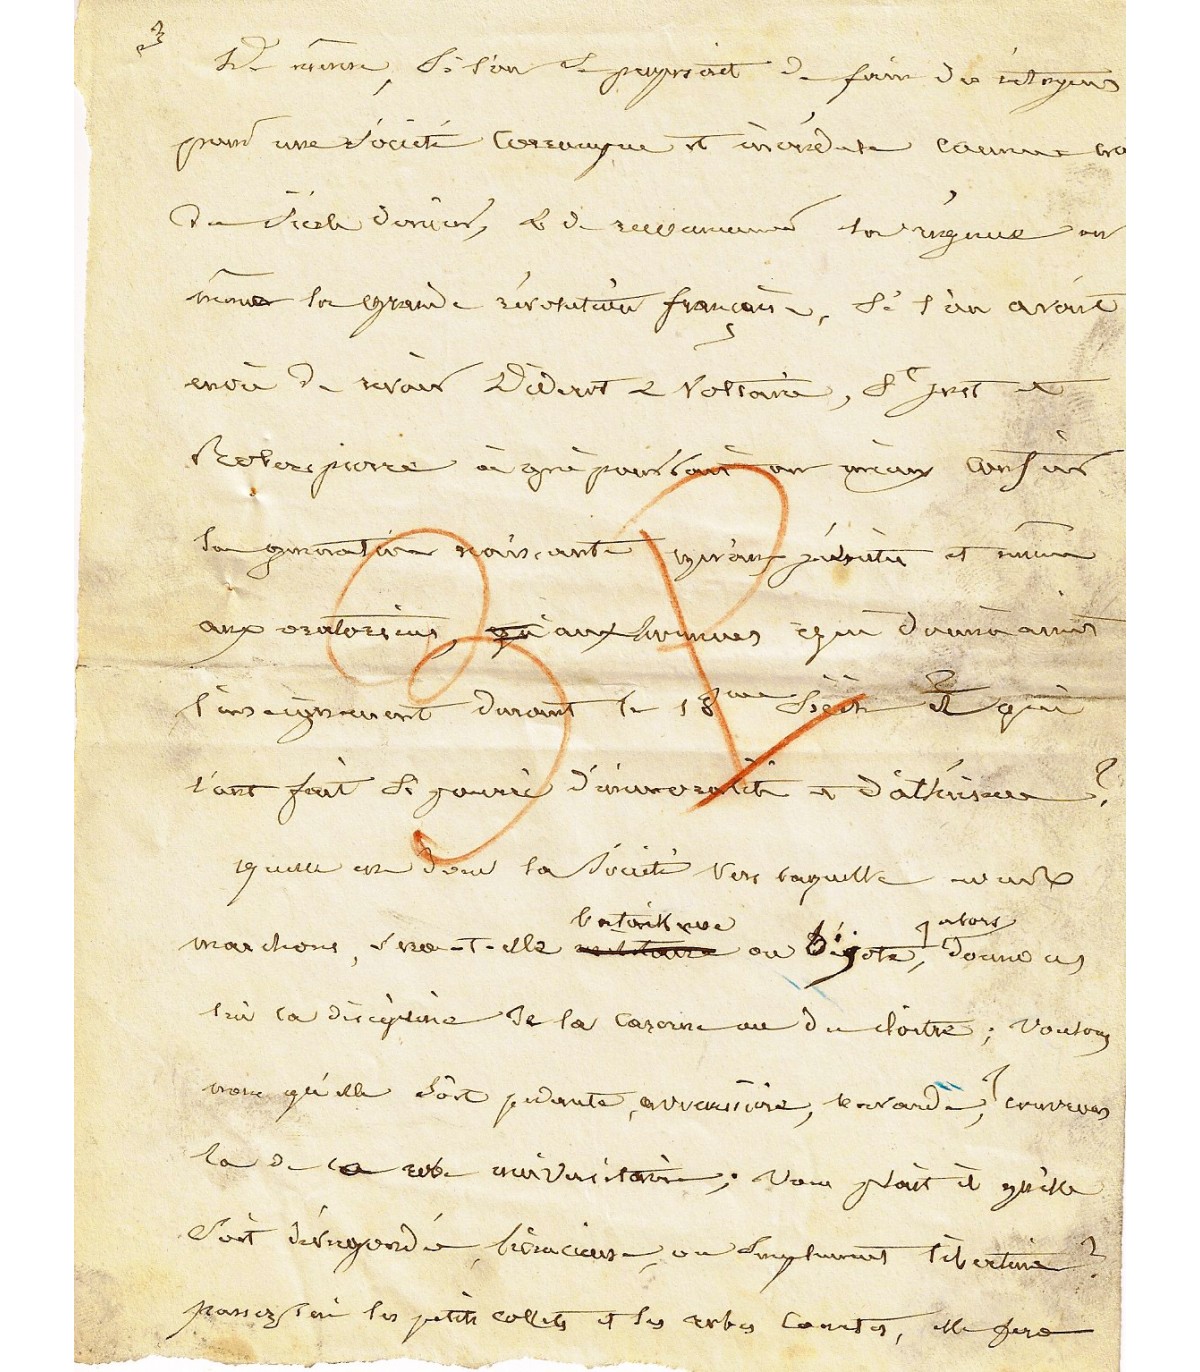 3
De même, si l'on se proposait de faire des citoyens
pour une Société corrompue et incrédule comme
du Siècle dernier, & de recommencer la régence ou
même la grande révolution française, si l'on avait
envie de revoir Diderot & Voltaire, St Just et
Robespierre à qui pourrait on mieux confier
la génération naissante qu'aux jésuites et même
aux oratoriens, qu'aux hommes qui donnaient
l'enseignement durant le 18eme Siècle & qui
l'ont fait si pourri d'immoralité et d'athéisme ?
quelle est donc la Société vers laquelle nous
batailleuse alors
marchons, sera-t-elle militaire ou bigote, donnez
lui la discipline de la caserne ou du cloître ; voulons
nous qu'elle soit pédante, avocassière, bavarde, ? couvrons
la de la robe universitaire ; vous plait il qu'elle
soit dévergondée, licencieuse, ou simplement libertine ?
passez lui les petits collets et les robes courtes, elle fera
3 P